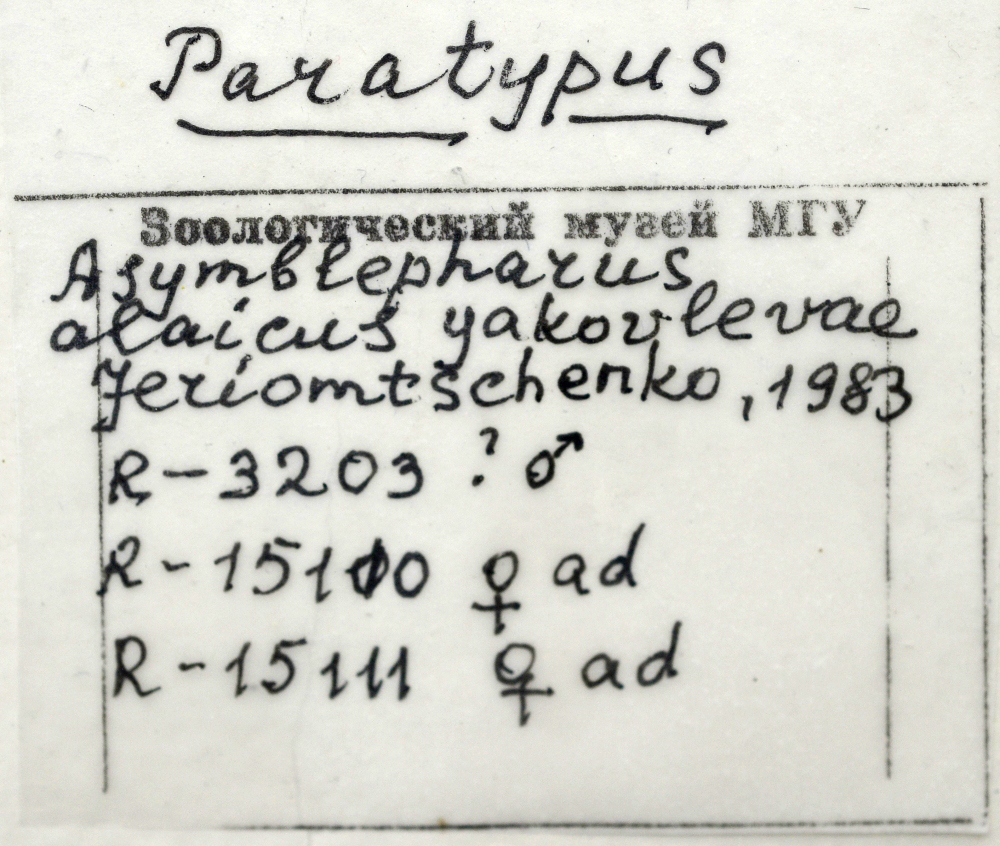 Paratypus
Зоологический музей МГУ
Asymblepharus
alaicus yakovlevae
Jeriomtschenko, 1983
R-3203 ? ♂
R-15110 ♀ ad
R-15111 ♀ ad